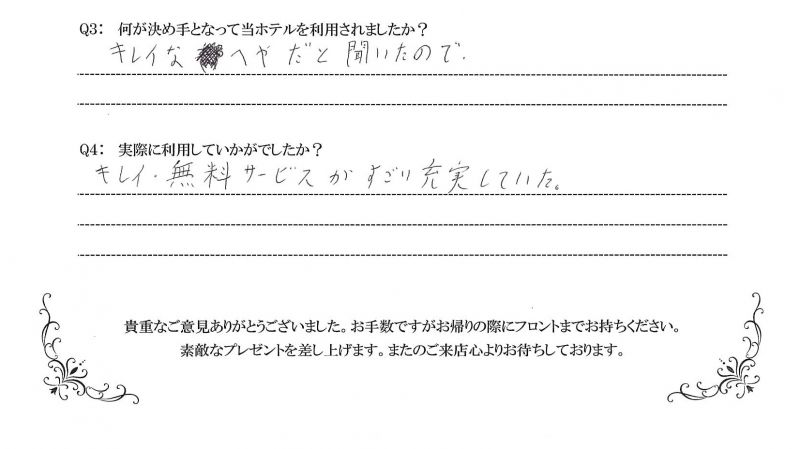 Q3： 何が決め手となって当ホテルを利用されましたか？
キレイな へやだと聞いたので.
Q4： 実際に利用していかがでしたか？
キレイ・無料サービスがすごい充実していた。
貴重なご意見ありがとうございました。お手数ですがお帰りの際にフロントまでお持ちください。
素敵なプレゼントを差し上げます。またのご来店心よりお待ちしております。